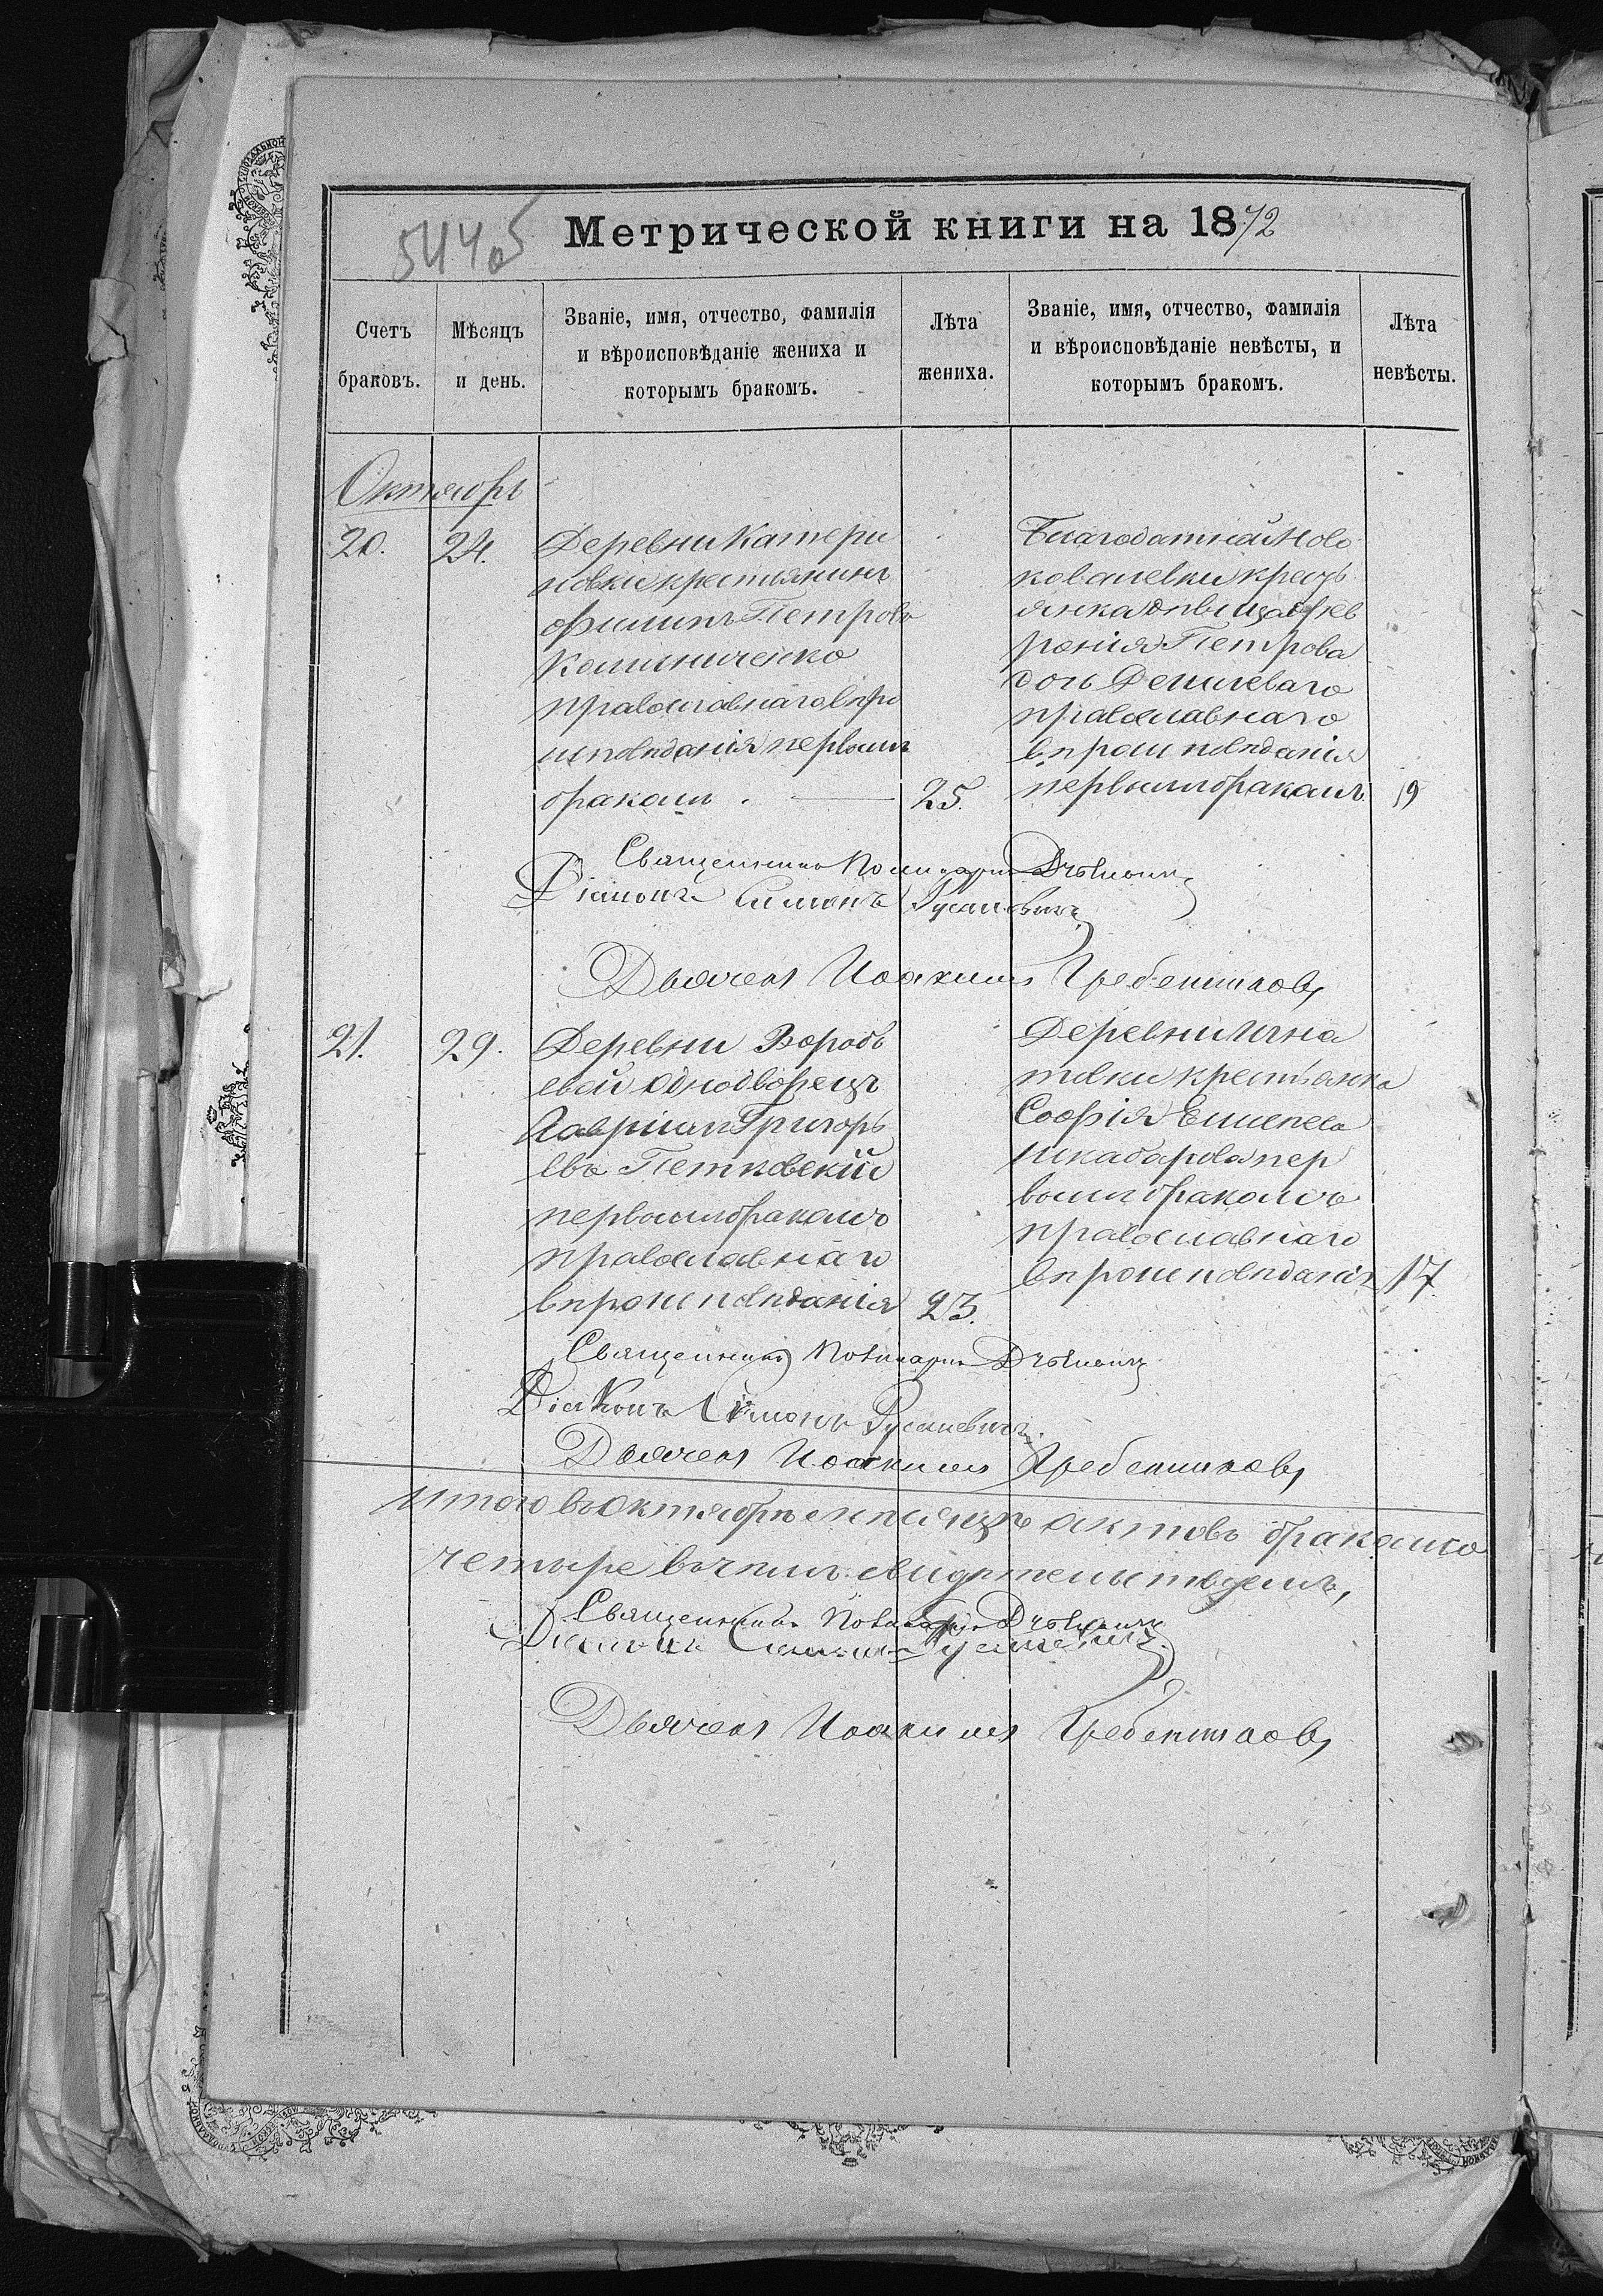 544об
Метрической книги на 1872
Счетъ браковъ.
Мѣсяцъ и день.
Званіе, имя, отчество, фамилія и вѣроисповѣданіе жениха и которымъ бракомъ.
Лѣта жениха.
Званіе, имя, отчество, фамилія и вѣроисповѣданіе невѣсты, и которымъ бракомъ.
Лѣта невѣсты.
Октябрь
20.
24.
Деревни Катери
новки крестьянинъ
Филипъ Петровъ
Колиниченко
православнаго вѣро
исповѣданія первымъ
бракомъ.
25.
Благодатной Ново
ковалевки кресть
янка дѣвица Фев
ронія Петрова
дочь Дешеваго
православнаго
вѣроисповѣданія
первымъ бракомъ
19
Священникъ
Діаконъ Симонъ Русаневичъ
Дьячекъ Иоакимъ Гребенщиковъ
21.
29.
Деревни Воробь
евой однодворецъ
Лавріинъ Григорь
евъ Петковскій
первымъ бракомъ
православнаго
вѣроисповѣданія
23.
Деревни Игна
товки крестьянка
Софія
первымъ бракомъ
православнаго
вѣроисповѣданія
17.
Священникъ
Діаконъ Симонъ Русаневичъ
Дьячекъ Иоакимъ Гребенщиковъ
Итого въ Октябрѣ мѣсяцѣ актовъ бракомъ
четыре въ чемъ свидѣтельствуемъ,
Священникъ
Діаконъ Симонъ Русаневичъ
Дьячекъ Иоакимъ Гребенщиковъ